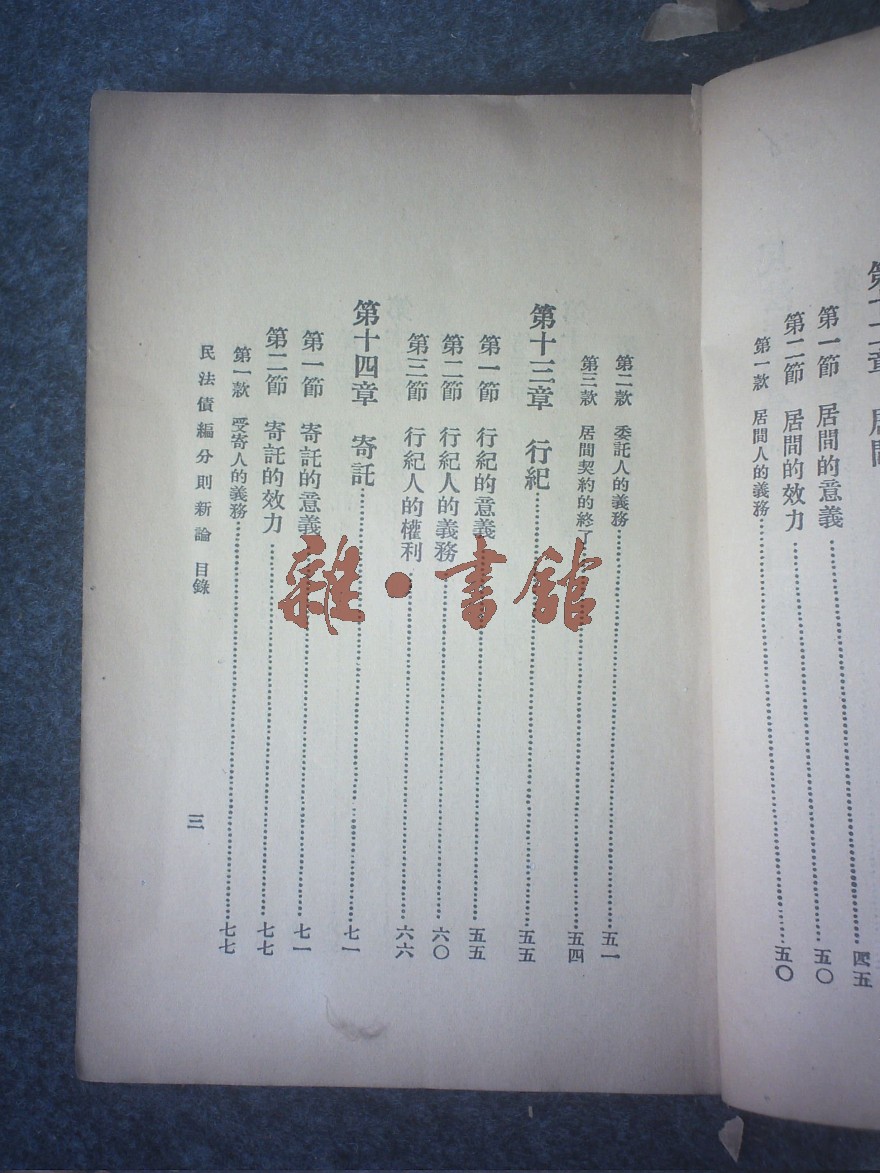 第十二章 居間
第一節 居間的意義……四五
第二節 居間的效力……五〇
第一款 居間人的義務……五〇
第二款 委託人的義務……五一
第三款 居間契約的終了……五四
第十三章 行紀……五五
第一節 行紀的意義……五五
第二節 行紀人的義務……六〇
第三節 行紀人的權利……六六
第十四章 寄託……七一
第一節 寄託的意義……七一
第二節 寄託的效力……七七
第一款 受寄人的義務……七七
民法債編分則新論 目錄 三
雜·書館